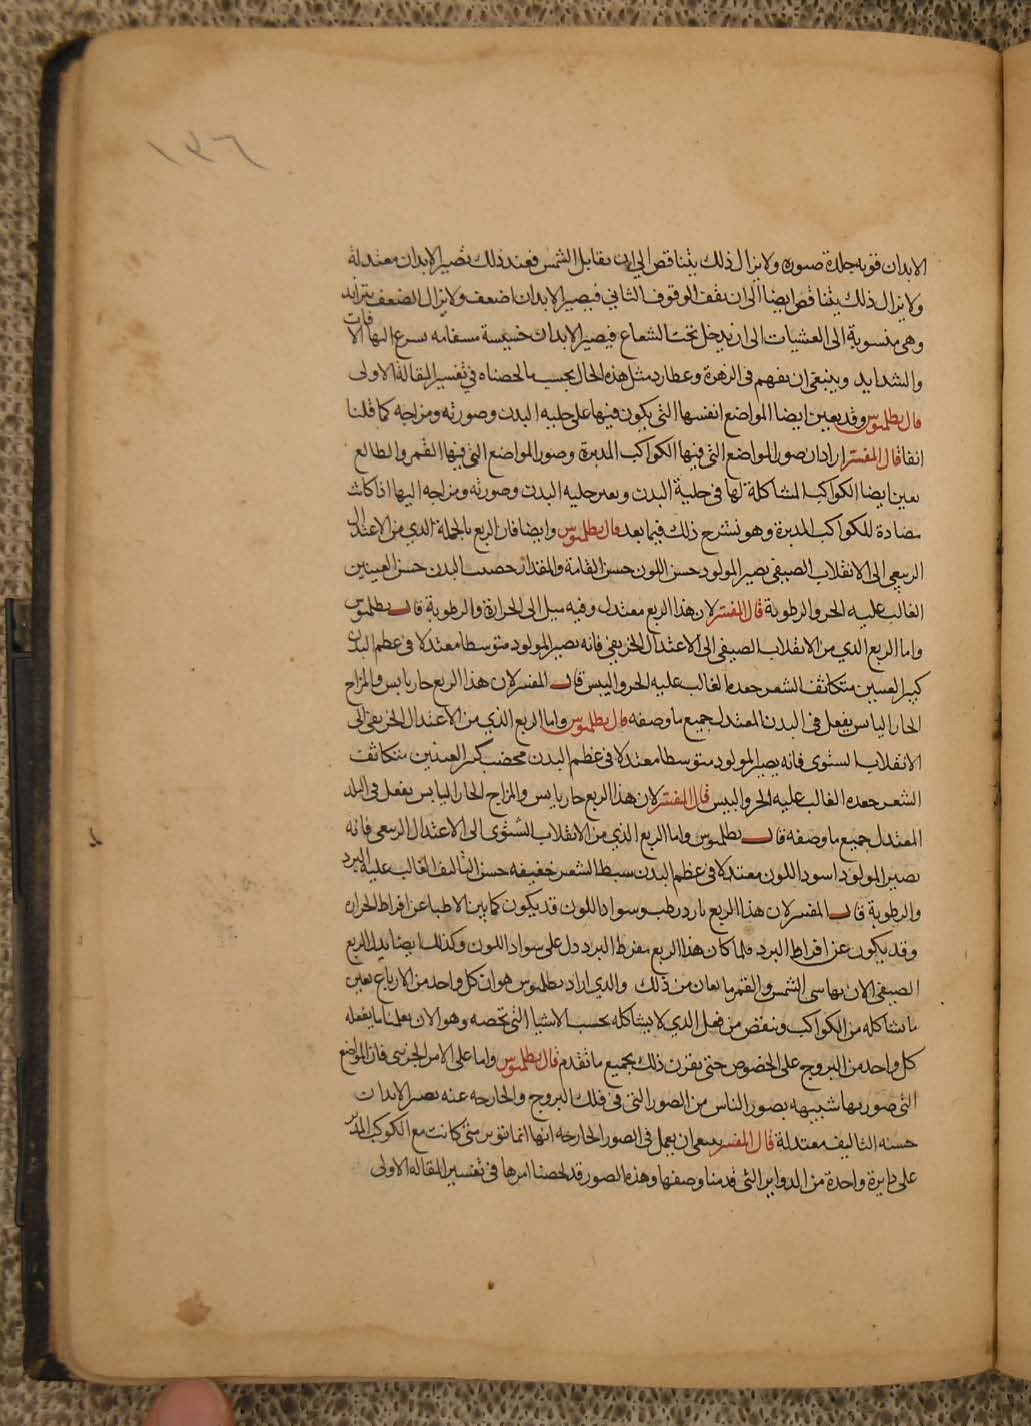 ١٣٦
الابدان قويه جلدة صبوره ولا يزال ذلك يتناقص الي ان يقابل الشمس فعند ذلك تصير الابدان معتدلة
ولا يزال ذلك يتناقص ايضا الى ان تقف الوقوف الثاني فيصير الابدان اضعف ولا يزال الضعف يتزايد
وهي منسوبة الى العشيات الى ان يدخل تحت الشعاع فيصير الابدان خسيسة مسقامه يسرع اليها الافات
والشدايد وينبغي ان تفهم في الزهرة وعطارد مثل هذه الحال بحسب ما لخصناه في تفسير المقالة الاولى
قال بطلميوس وقد يعين ايضا المواضع انفسها التي يكون فيها على حليه البدن وصورته ومزاجه كما قلنا
انفا قال المفسر اراد ان صور المواضع التي فيها الكواكب المدبرة وصور المواضع التي فيها القمر والطالع
يعين ايضا الكواكب المشاكلة لها في حلية البدن وبغير حليه البدن وصورته ومزاجه اليها اذا كانت
مضادة للكواكب المدبرة وهو يشرح ذلك فيما بعد قال بطلميوس وايضا فان الربع بالجملة الذي من الاعتدال
الربيعي الى الانقلاب الصيفي يصير المولود حسن اللون حسن القامة والمقدار خصيب البدن حسن العينين
الغالب عليه الحر والرطوبة قال المفسر لان هذا الربع معتدل وفيه ميل الى الحرارة والرطوبة قال بطلميوس
واما الربع الذي من الانقلاب الصيفي الى الاعتدال الخريفي فانه يصير المولود متوسطا معتدلا في عظم البدن
كبير العينين متكاثف الشعر جعده الغالب عليه الحر واليبس قال المفسر لان هذا الربع حار يابس والمزاج
الحار اليابس يفعل في البدن المعتدل جميع ما وصفه قال بطلميوس واما الربع الذي من الاعتدال الخريفي الى
الانقلاب الشتوى فانه يصير المولود متوسطا معتدلا في عظم البدن مخصب كبير العينين متكاثف
الشعر جعده الغالب عليه الحر واليبس قال المفسر لان هذا الربع حار يابس والمزاج الحار اليابس يفعل في البدن
المعتدل جميع ما وصفه قال بطلميوس واما الربع الذي من الانقلاب الشتوى الى الاعتدال الربيعي فانه
يصير المولود اسود اللون معتدلا في عظم البدن سبط الشعر خفيفه حسن التاليف الغالب عليه البرد
والرطوبة قال المفسر لان هذا الربع بارد رطب وسواد اللون قد يكون كما بين الاطبا عن افراط الحراره
وقد يكون عن افراط البرد فلما كان هذا الربع مفرط البرد دل على سواد اللون وكذلك ايضا يدل الربع
الصيفي الا ان والقمر من ذلك والذي اراد بطلميوس هو ان كل واحد من الارباع يعين
ما يشاكله من الكواكب وينقص من فعل الذي لا يشاكله بحسب الاشيا التي تخصه وهو الان يعلمنا ما يفعله
كل واحد من البروج على الخصوص حتى يقرن ذلك بجميع ما تقدم قال بطلميوس واما على الامر الجزسى فان المواضع
التي صورتها شبيهه بصور الناس من الصور التي في فلك البروج والخارجه عنه يصير الابدان
حسنه التاليف معتدلة قال المفسر ينبغي ان يعمل في الصور الخارجه انها انما تؤثر متى كانت مع الكوكب المدبر
على دايرة واحدة من الدواير التي قدمنا وصفها وهذه الصور قد لخصنا امرها في تفسير المقاله الاولى